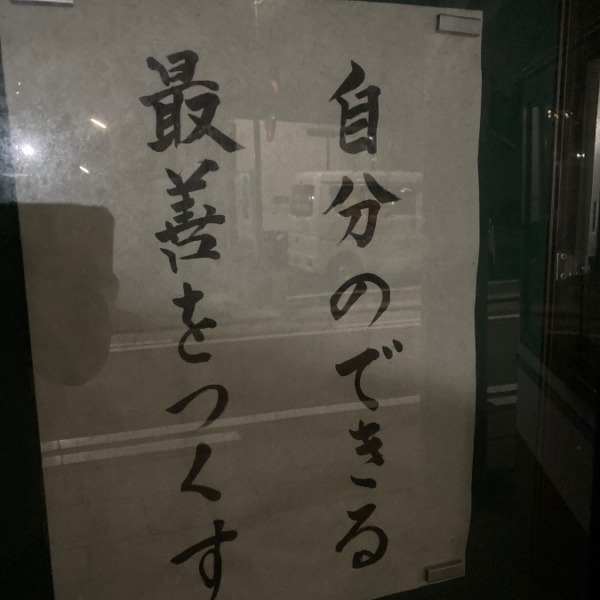 自分のできる
最善をつくす